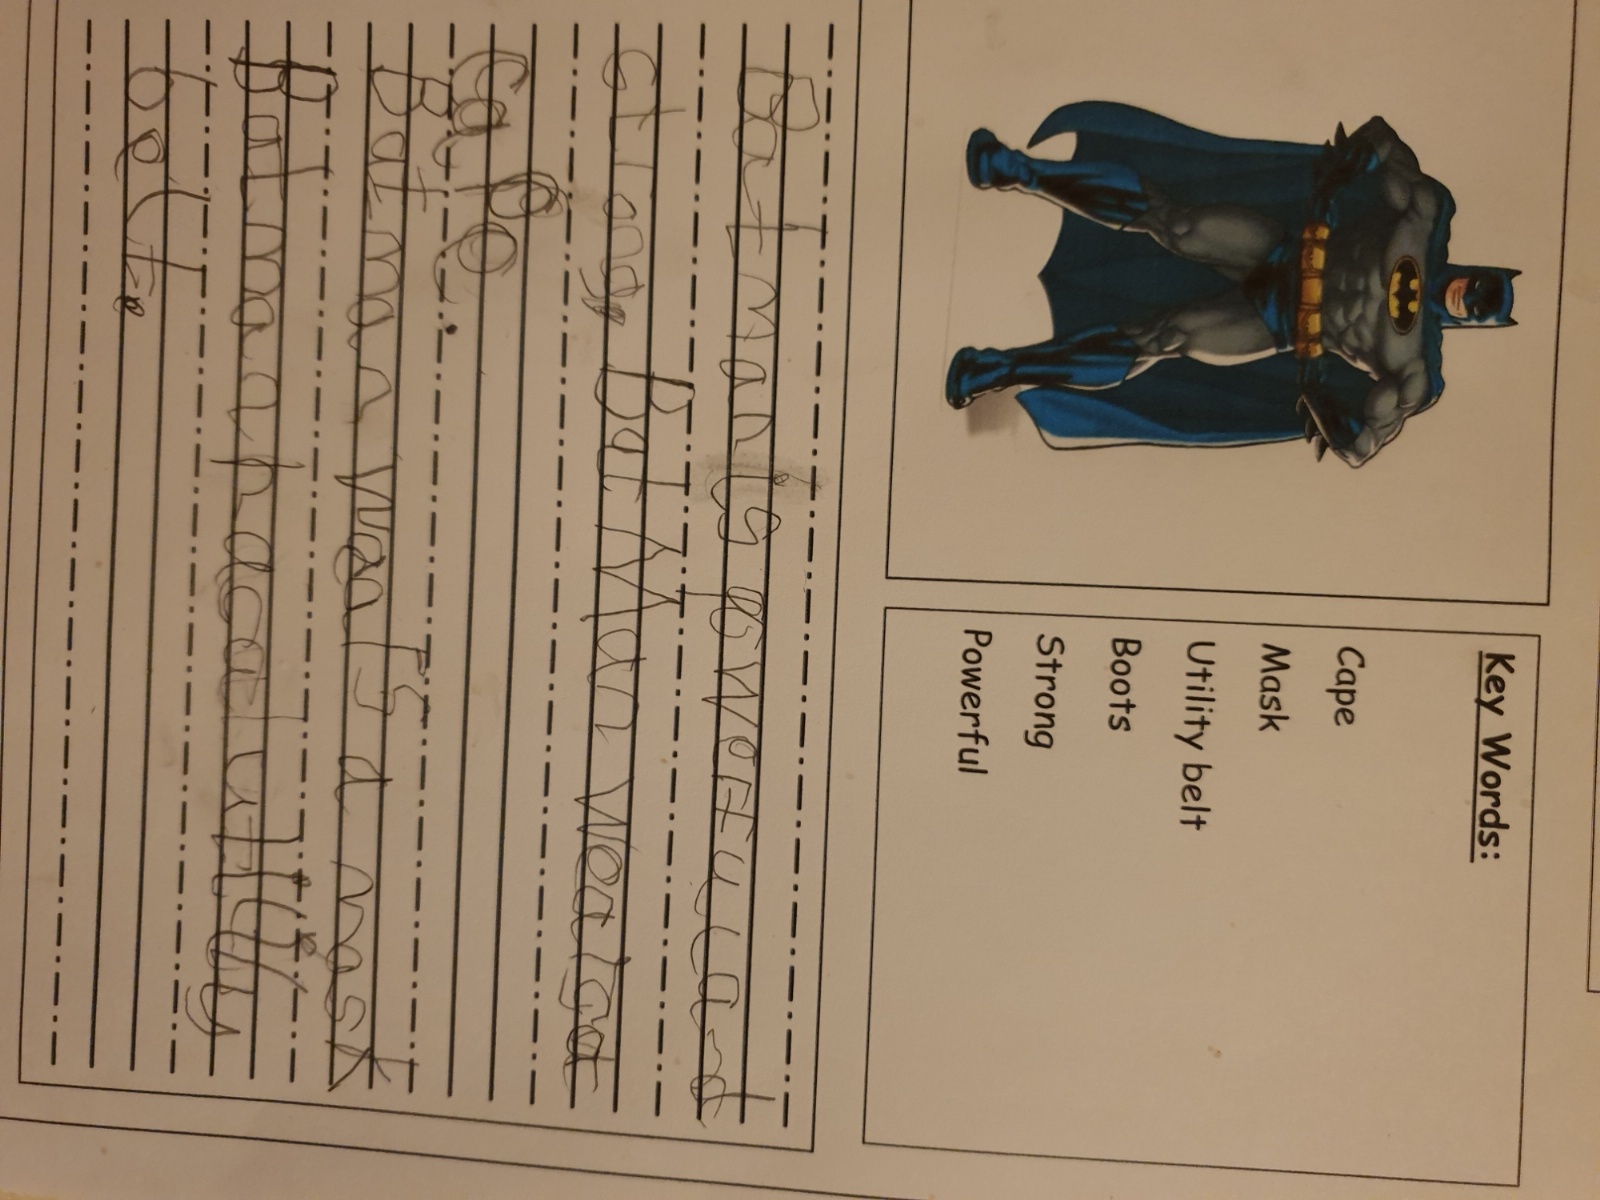 Key Words:
Cape
Mask
Utility belt
Boots
Strong
Powerful
Batman is and
strong. Batman
Cape.
Batman wears a mask
Batman a utility
belt.